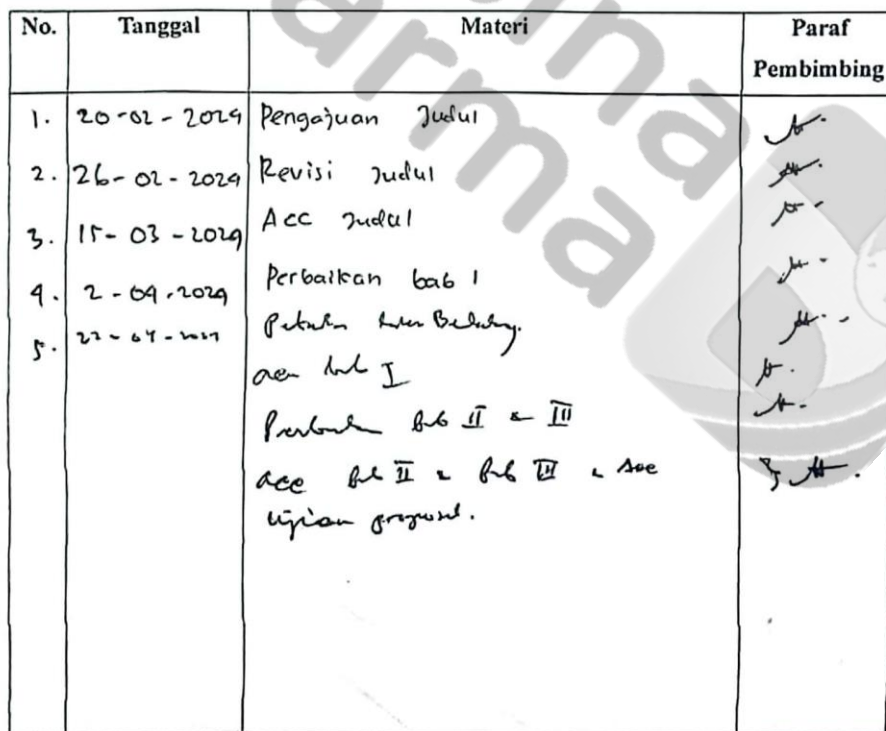 No. Tanggal Materi Paraf Pembimbing
1. 20-02-2024 Pengajuan Judul
2. 26-02-2024 Revisi Judul
3. 15-03-2024 Acc Judul
4. 2-04-2024 Perbaikan bab 1
5. 22-04-2024
acc bab I
Perbaikan bab II & III
acc bab II & bab III & Acc
Ujian proposal.
ina
arma